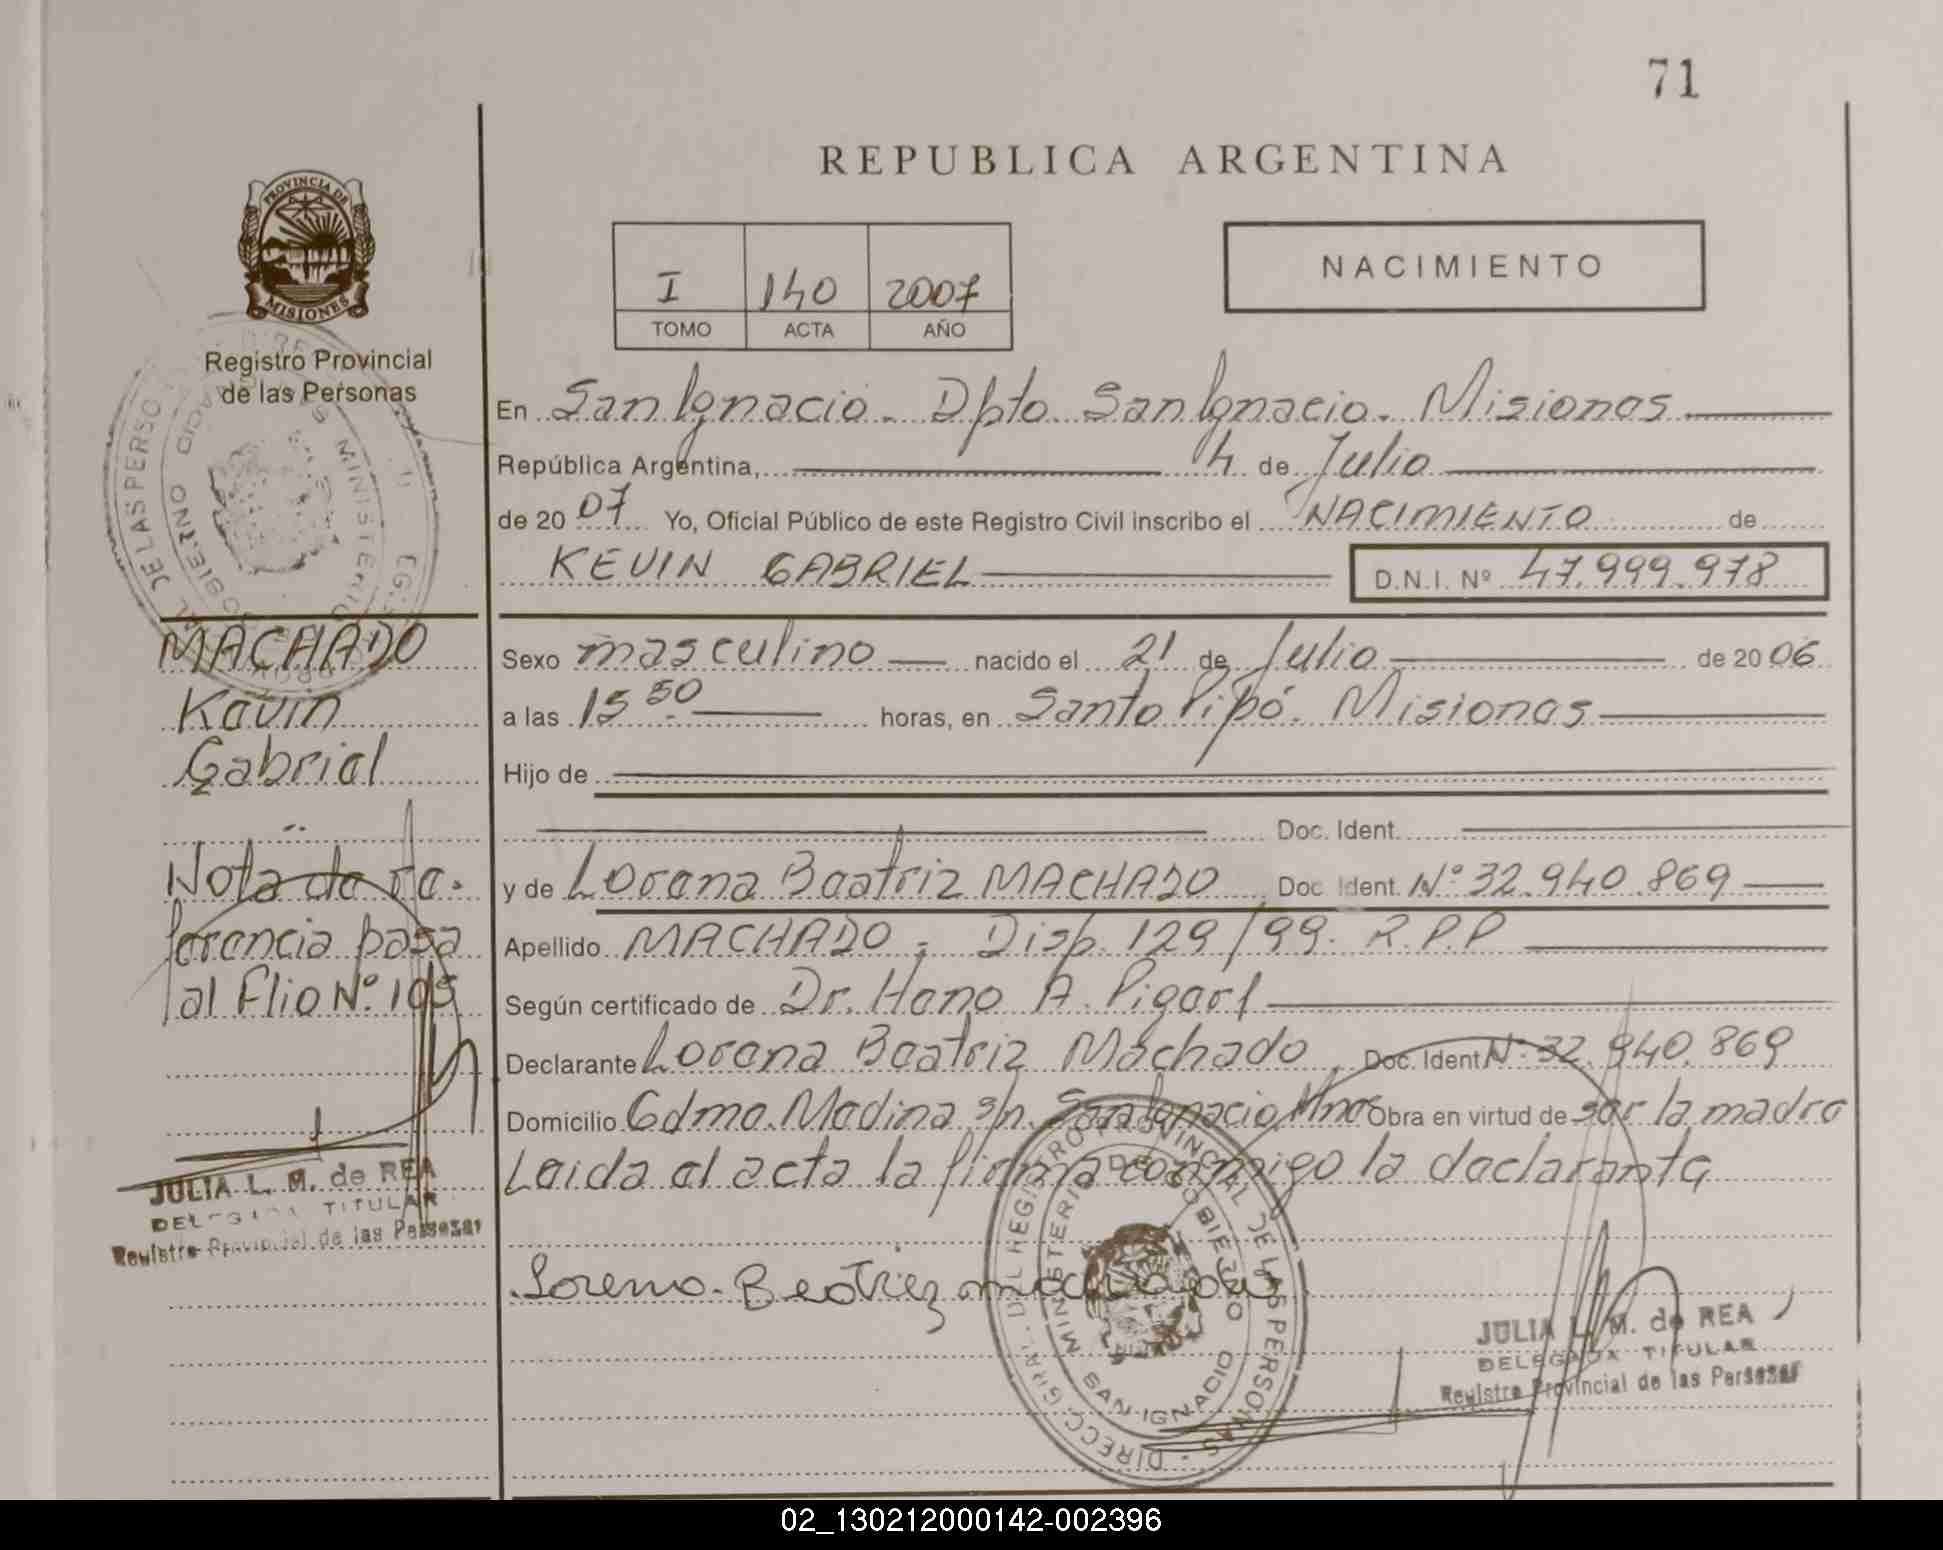 71
REPUBLICA ARGENTINA
PROVINCIA DE
MISIONES
Registro Provincial
de las Personas
I 140 2007
TOMO ACTA AÑO
NACIMIENTO
En San Ignacio. Dpto San Ignacio. Misiones
República Argentina, 4 de Julio
de 20 07 Yo, Oficial Público de este Registro Civil inscribo el NACIMIENTO de
KEVIN GABRIEL D.N.I. Nº 47.999.978
MACHADO
Kevin
Gabriel
Nota de re-
ferencia pasa
al Flio Nº 105
JULIA L. M. de REA
DELEGADA TITULAR
Registro Provincial de las Personas
Sexo masculino nacido el 21 de Julio de 20 06
a las 15 50 horas, en Santo Pipó. Misiones
Hijo de
Doc. Ident.
y de Lorena Beatriz MACHADO Doc. Ident. Nº 32.940.869
Apellido MACHADO - Disp. 129/99. R.P.P
Según certificado de Dr. Hano A.
Declarante Lorena Beatriz Machado Doc. Ident Nº 32.940.869
Domicilio Gdmo. Medina s/n. San Ignacio Mnes Obra en virtud de ser la madre
Leida el acta la firma conmigo la declarante
Loreno Beatriez machado
DIRECC. GRAL. DEL REGISTRO PROVINCIAL DE LAS PERSONAS
MINISTERIO DE GOBIERNO
SAN IGNACIO
JULIA L. M. de REA
DELEGADA TITULAR
Registro Provincial de las Personas
02_130212000142-002396